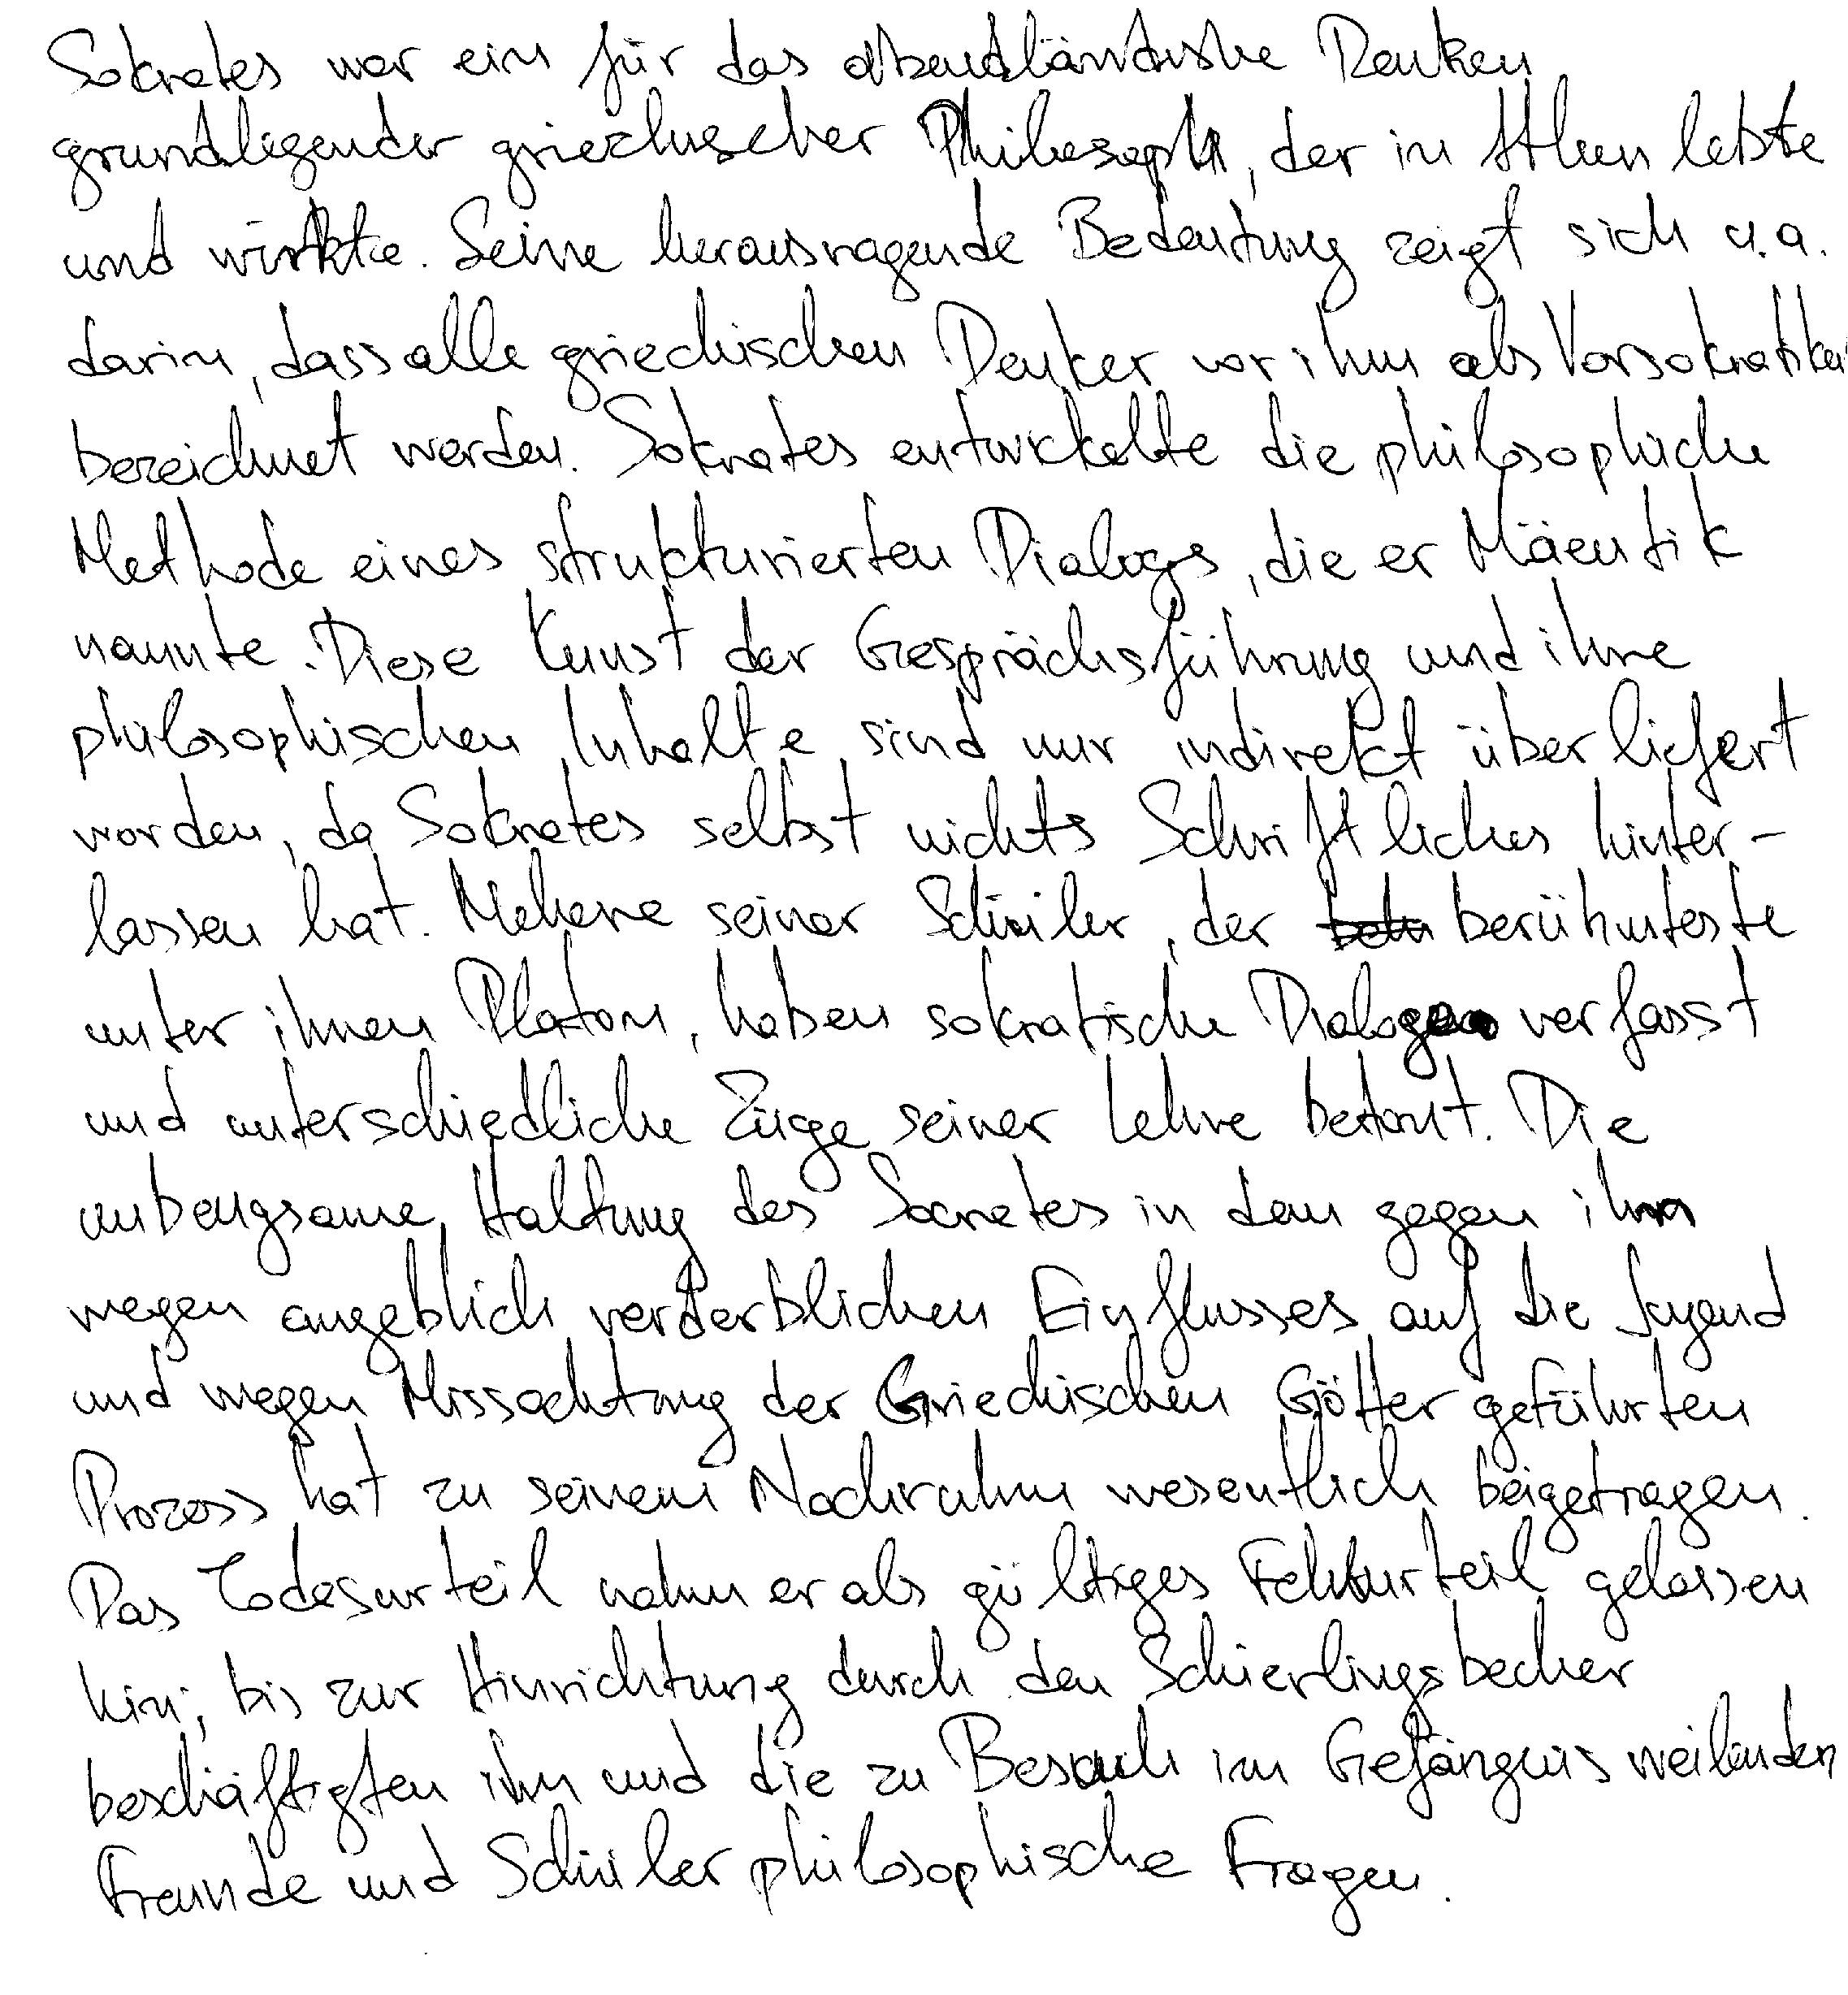 Sokrates war ein für das abendländische Denken
grundlegender griechischer Philosoph, der in Athen lebte
und wirkte. Seine herausragende Bedeutung zeigt sich u.a.
darin, dass alle griechischen Denker vor ihm als Vorsokratiker
bezeichnet werden. Sokrates entwickelte die philosophiche
Methode eines strukturierten Dialogs, die er Mäeutik
nannte. Diese Kunst der Gesprächsführung und ihre
philosophischen Inhalte sind nur indirekt überliefert
worden, da Sokrates selbst nichts Schriftliches hinter-
lassen hat. Mehrere seiner Schüler, der berühmteste
unter ihnen Platon, haben sokratische Dialoge verfasst
und unterschiedliche Züge seiner Lehre betont. Die
unbeugsame Haltung des Socrates in dem gegen ihn
wegen angeblich verderblichen Einflusses auf die Jugend
und wegen Missachtung der Griechischen Götter geführten
Prozess hat zu seinem Nachruhm wesentlich beigetragen.
Das Todesurteil nahm er als gültiges Fehlurteil gelassen
hin; bis zur Hinrichtung durch den Schierlingsbecher
beschäftigten ihn und die zu Besuch im Gefängnis weilenden
Freunde und Schüler philosophische Fragen.